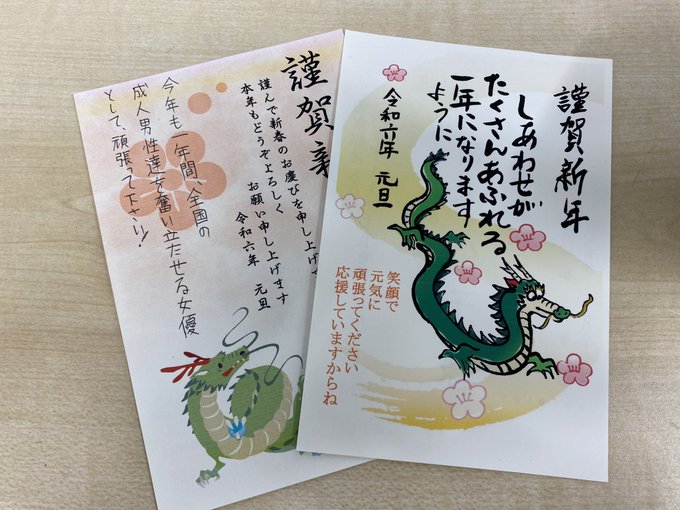 謹賀新年
しあわせが
たくさんあふれる
一年になります
ように
令和六年 元旦
笑顔で
元気に
頑張ってください
応援していますからね
謹賀新
謹んで新春のお慶びを申し上げ
本年もどうぞよろしく
お願い申し上げます
令和六年 元旦
今年も一年間、全国の
成人男性達を奮い立たせる女優
として、頑張って下さい!